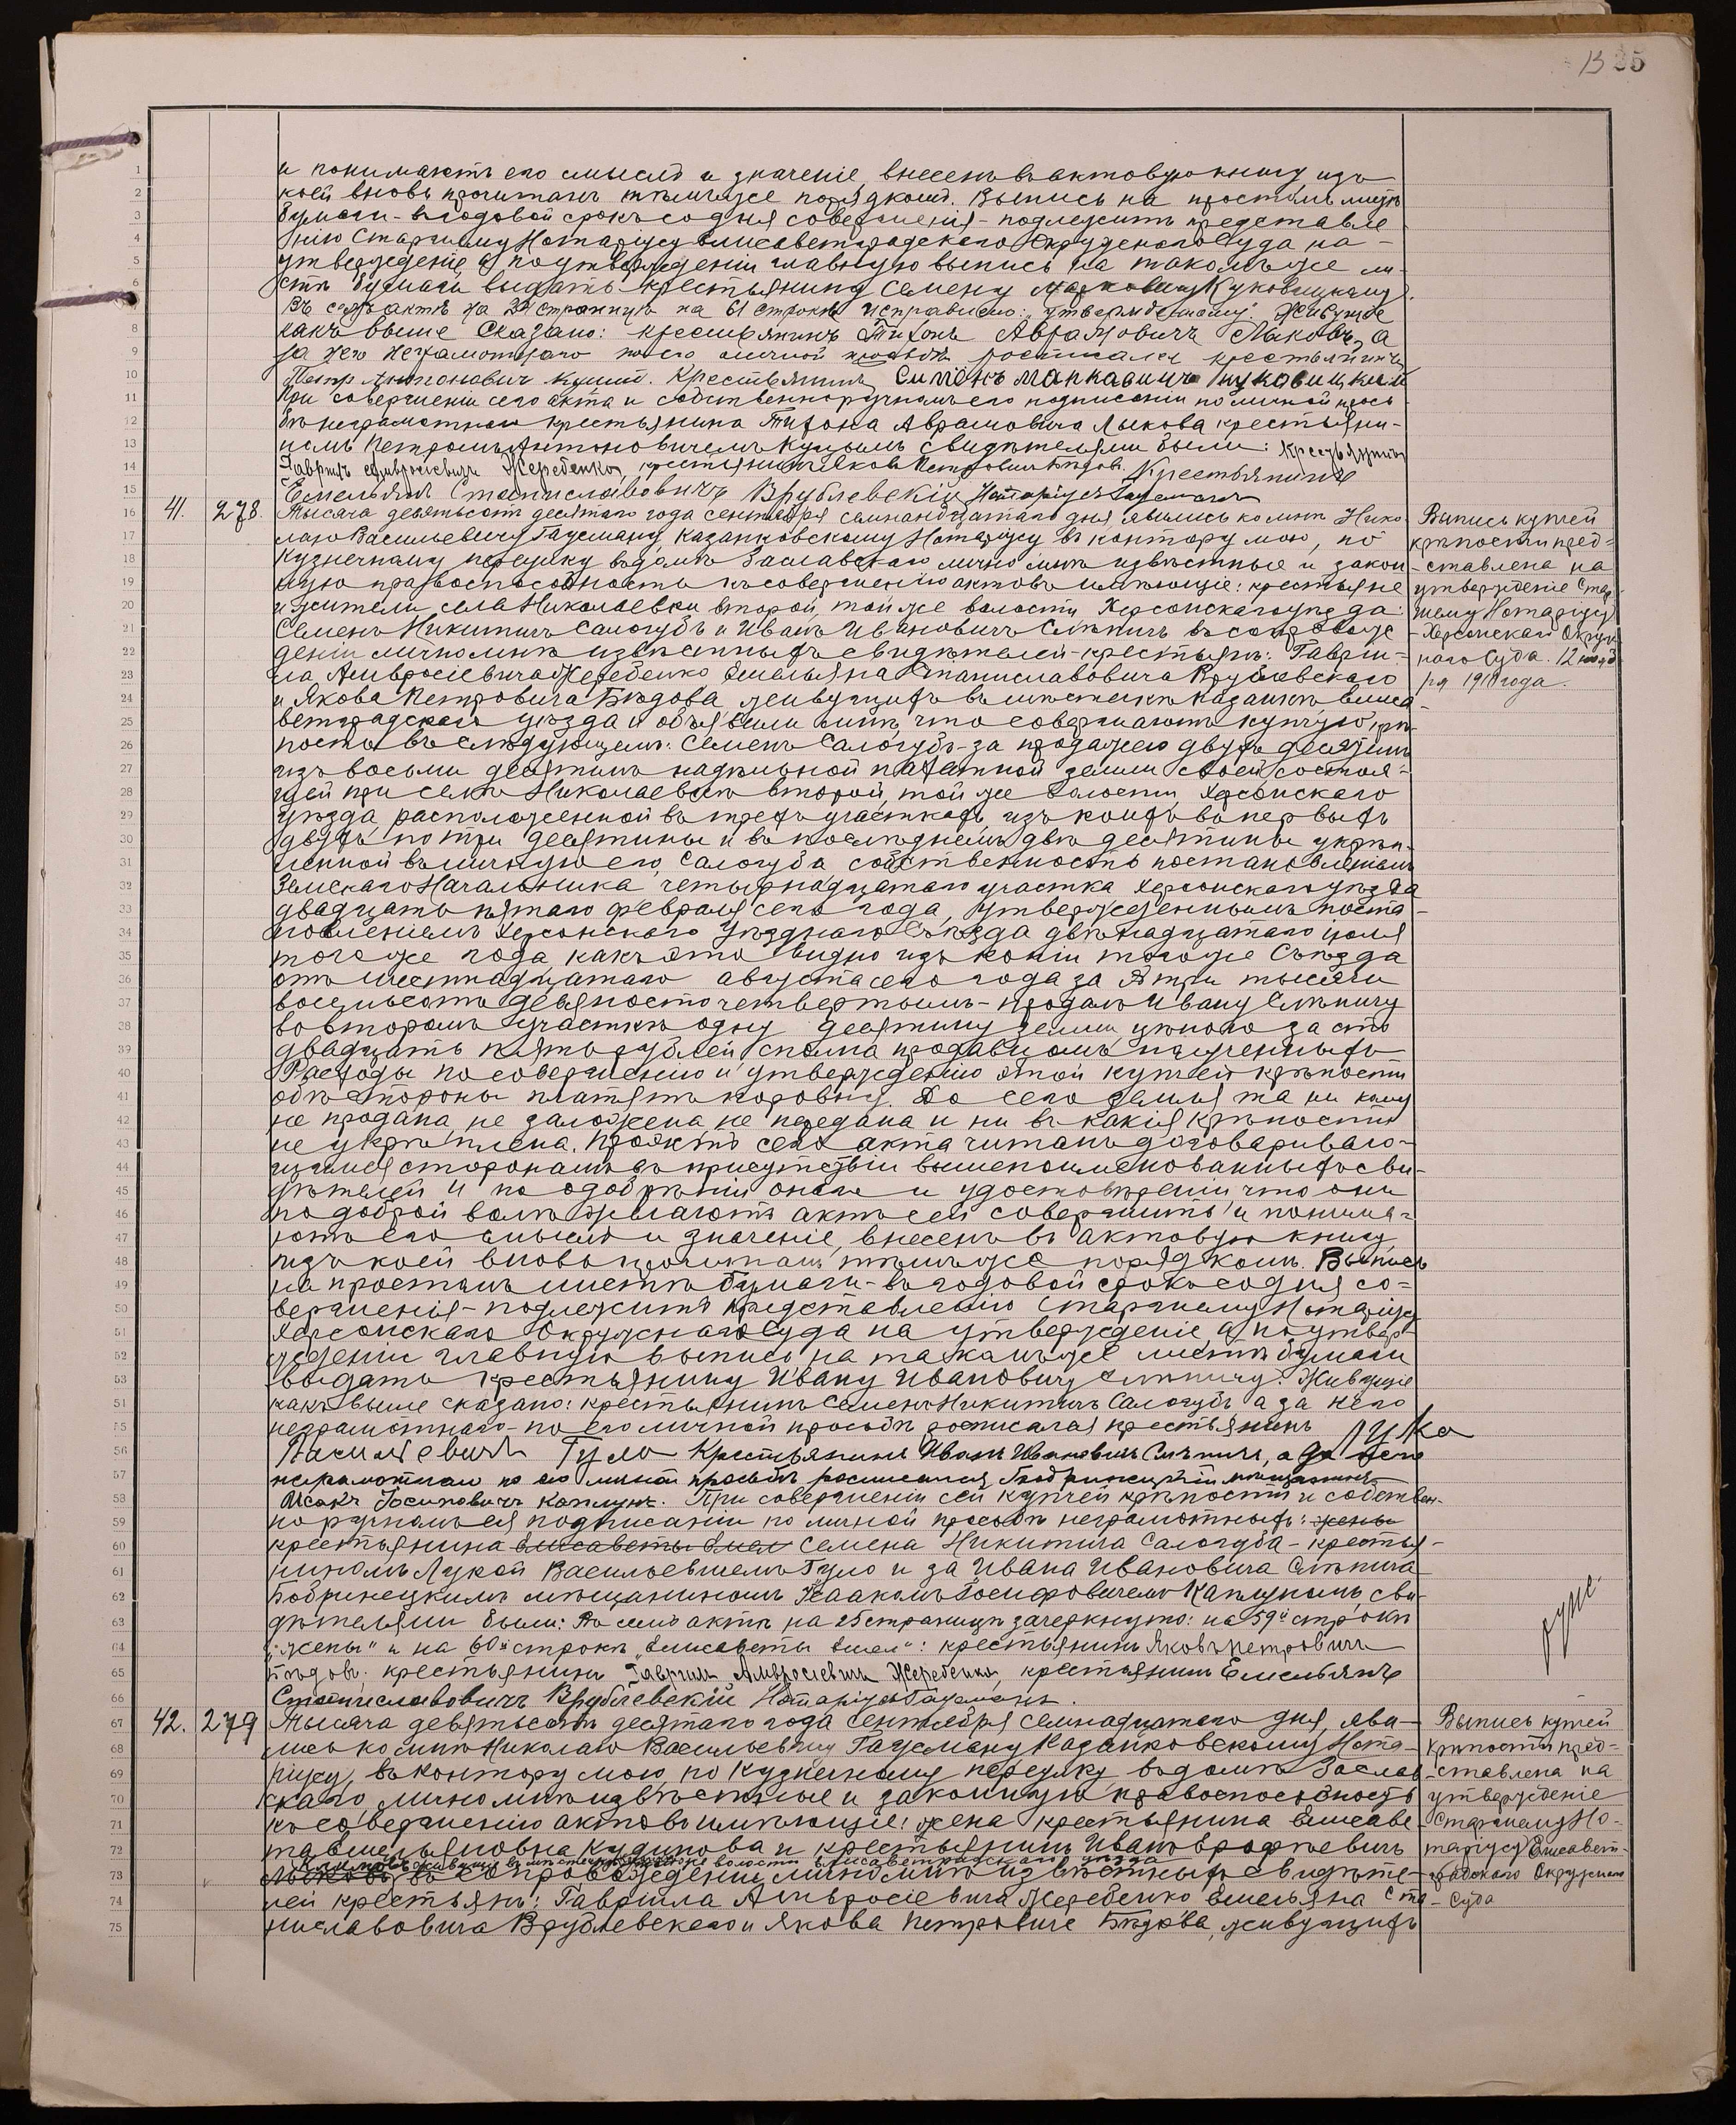 13 25
и понимаютъ его смыслъ и значеніе внесенъ въ актовую книгу, изъ
коей вновь прочитанъ тѣмъ же порядкомъ. Выпись на простомъ листѣ
бумаги - въ годовой срокъ со дня совершенія - подлежитъ представле
нію Старшему Нотаріусу Елисаветградскаго Окружнаго Суда на -
утвержденіе, а по утвержденіи главную выпись на такомъ же ли-
стѣ бумаги выдать крестьянину Семену Марковичу Куковицкому.
Въ семъ актѣ на 24 страницѣ на 61 строкѣ исправлено: "утвержденному". Живущіе
какъ выше сказано: крестьянинъ Тифонъ Аврамовичъ Лыковъ, а
за него неграмотнаго по его личной просьбѣ росписался крестьянинъ
Петр Антонович Куцый. Крестьянинъ Симонъ Маркавичъ Куковицкий
При совершеніи сего акта и собственноручномъ его подписаніи по личной прось
бѣ неграмотнаго крестьянина Тифона Аврамовича Лыкова крестьяни-
номъ Петромъ Антоновичемъ Куцымъ свидѣтелями были: Крестьянинъ
Гавріилъ Амвросіевичъ Жеребенко, крестьянинъ Яковъ Петровичъ Бѣдов. Крестьянинъ
Емельянъ Станиславовичъ Врублевскій Нотаріусъ Гаусманъ
41. 278. Тысяча девятьсотъ десятаго года сентября семнандцатаго дня, явились ко мнѣ Нико
лаю Васильевичу Гаусману, Казанковскому Нотаріусу въ контору мою, по
Кузнечному переулку въ домѣ Заславскаго лично мнѣ извѣстные и закон
ную правоспособность къ совершенію актовъ имѣющіе: крестьяне
и жители села Николаевки второй, той же волости Херсонскаго уѣзда:
Семенъ Никитичъ Салогубъ и Иванъ Ивановичъ Слѣпичъ въ сопровож
деніи лично мнѣ извѣстныхъ свидѣтелей-крестьянъ: Гаврии-
ла Амвросіевича Жеребенко Емельяна Станиславовича Врублевскаго
и Якова Петровича Бѣдова, живущихъ въ мѣстечкѣ Казанкѣ, Елиса
ветградскаго уѣзда и объявили мнѣ, что совершаютъ купчую крѣ-
пость въ слѣдующемъ: Семенъ Салогубъ - за продажею двухъ десятинъ
изъ восьми десятинъ надѣльной пахатной земли своей состоя-
щей при селѣ Николаевкѣ второй, той же волости, Херсонскаго
уѣзда, расположенной въ трехъ участкахъ, изъ коихъ въ первыхъ
двухъ по три десятины и въ послѣднемъ двѣ десятины укрѣп-
ленной въ личную его, Салогуба собственность постановленіемъ
Земскаго Начальника четырнадцатаго участка Херсонскаго уѣзда
двадцать пятаго февраля сего года, утвержденнымъ поста-
новленіемъ Херсонскаго Уѣзднаго Съѣзда двѣнадцатаго іюля
того же года, какъ это видно изъ копіи того же Съѣзда
отъ шестнадцатаго августа сего года за № три тысячи
восемьсотъ девяносто четвертымъ - продалъ Ивану Слѣпичу
во второмъ участкѣ одну десятину земли цѣною за сто
двадцать пять рублей сполна продавцомъ полученныхъ
Расходы по совершенію и утвержденію этой купчей крѣпости
обѣ стороны платятъ поровну. До сего земля та ни кому
не продана, не заложена, не передана и ни въ какія крѣпости
не укрѣплена. Проэктъ сего акта читанъ договариваю-
щимся сторонамъ въ присутствіи вышепоименованныхъ сви-
дѣтелей и по одобреніи онаго и удостовѣреніи что они
по доброй волѣ желаютъ актъ сей совершить и понима-
ютъ его смыслъ и значеніе, внесенъ въ актовую книгу,
изъ коей вновь прочитанъ тѣмъ же порядкомъ. Выпись
на простомъ листѣ бумаги - въ годовой срокъ со дня со-
вершенія - подлежитъ представленію Старшему Нотаріусу
Херсонскаго Окружнаго Суда на утвержденіе, а по утвер
жденіи главную выпись на такомъ же листѣ бумаги
выдать крестьянину Ивану Ивановичу Слѣпичу. Живущіе
какъ выше сказано: крестьянинъ Семенъ Никитичъ Салогубъ, а за него
неграмотнаго - по его личной просьбѣ росписался крестьянинъ Лука
Васильевичъ Гуло Крестьянинъ Иванъ Ивановичъ Слѣпичъ, а за него
неграмотнаго по его личной просьбѣ росписался Бобринецкій мѣщанинъ
Исакъ Іосиповичъ Каплунъ. При совершеніи сей купчей крѣпости и собствен-
норучномъ ея подписаніи по личной просьбѣ неграмотныхъ: жены
крестьянина Елисаветы Емел Семена Никитича Салогуба - крестья-
ниномъ Лукой Васильевичемъ Гуло и за Ивана Ивановича Слѣпича
Бобринецкимъ мѣщаниномъ Исаакомъ Іосифовичемъ Каплуномъ, сви-
дѣтелями были: Въ семъ актѣ на 25 страницѣ зачеркнуто: на 59й строкѣ
"жены" и на 60й строкѣ "Елисаветы Емел": крестьянинъ Яковъ Петровичъ
Бѣдовъ. крестьянинъ Гавріилъ Амвросіевичъ Жеребенко, крестьянинъ Емельянъ
Станиславовичъ Врублевскій Нотаріусъ Гаусманъ.
42. 279 Тысяча девятьсотъ десятаго года сентября семнадцатаго дня, яви-
лись ко мнѣ Николаю Васильевичу Гаусману Казанковскому Нота-
ріусу, въ контору мою, по Кузнечному переулку въ домѣ Заслав
скаго, лично мнѣ извѣстные и законную правоспособность
къ совершенію актовъ имѣющіе: жена крестьянина Елисаве
та Емельяновна Кудинова и крестьянинъ Иванъ Ерофѣевичъ
Климовъ живущіе въ мѣстечкѣ Казанкѣ той же волости Елисаветградскаго уѣзда
Лыковъ, въ сопровожденіи лично мнѣ извѣстныхъ свидѣте-
лей крестьянъ: Гавриила Амвросіевича Жеребенко Емельяна Ста
ниславовича Врублевскаго и Якова Петровича Бѣдова, живущихъ
Выпись купчей
крѣпости пред-
ставлена на
утвержденіе Стар
шему Нотаріусу
Херсонскаго Окруж
наго Суда. 12
ря 1910 года.
Выпись купчей
крѣпости пред-
ставлена на
утвержденіе
Старшему Но-
таріусу Елисавет-
градскаго Окружнаго
Суда